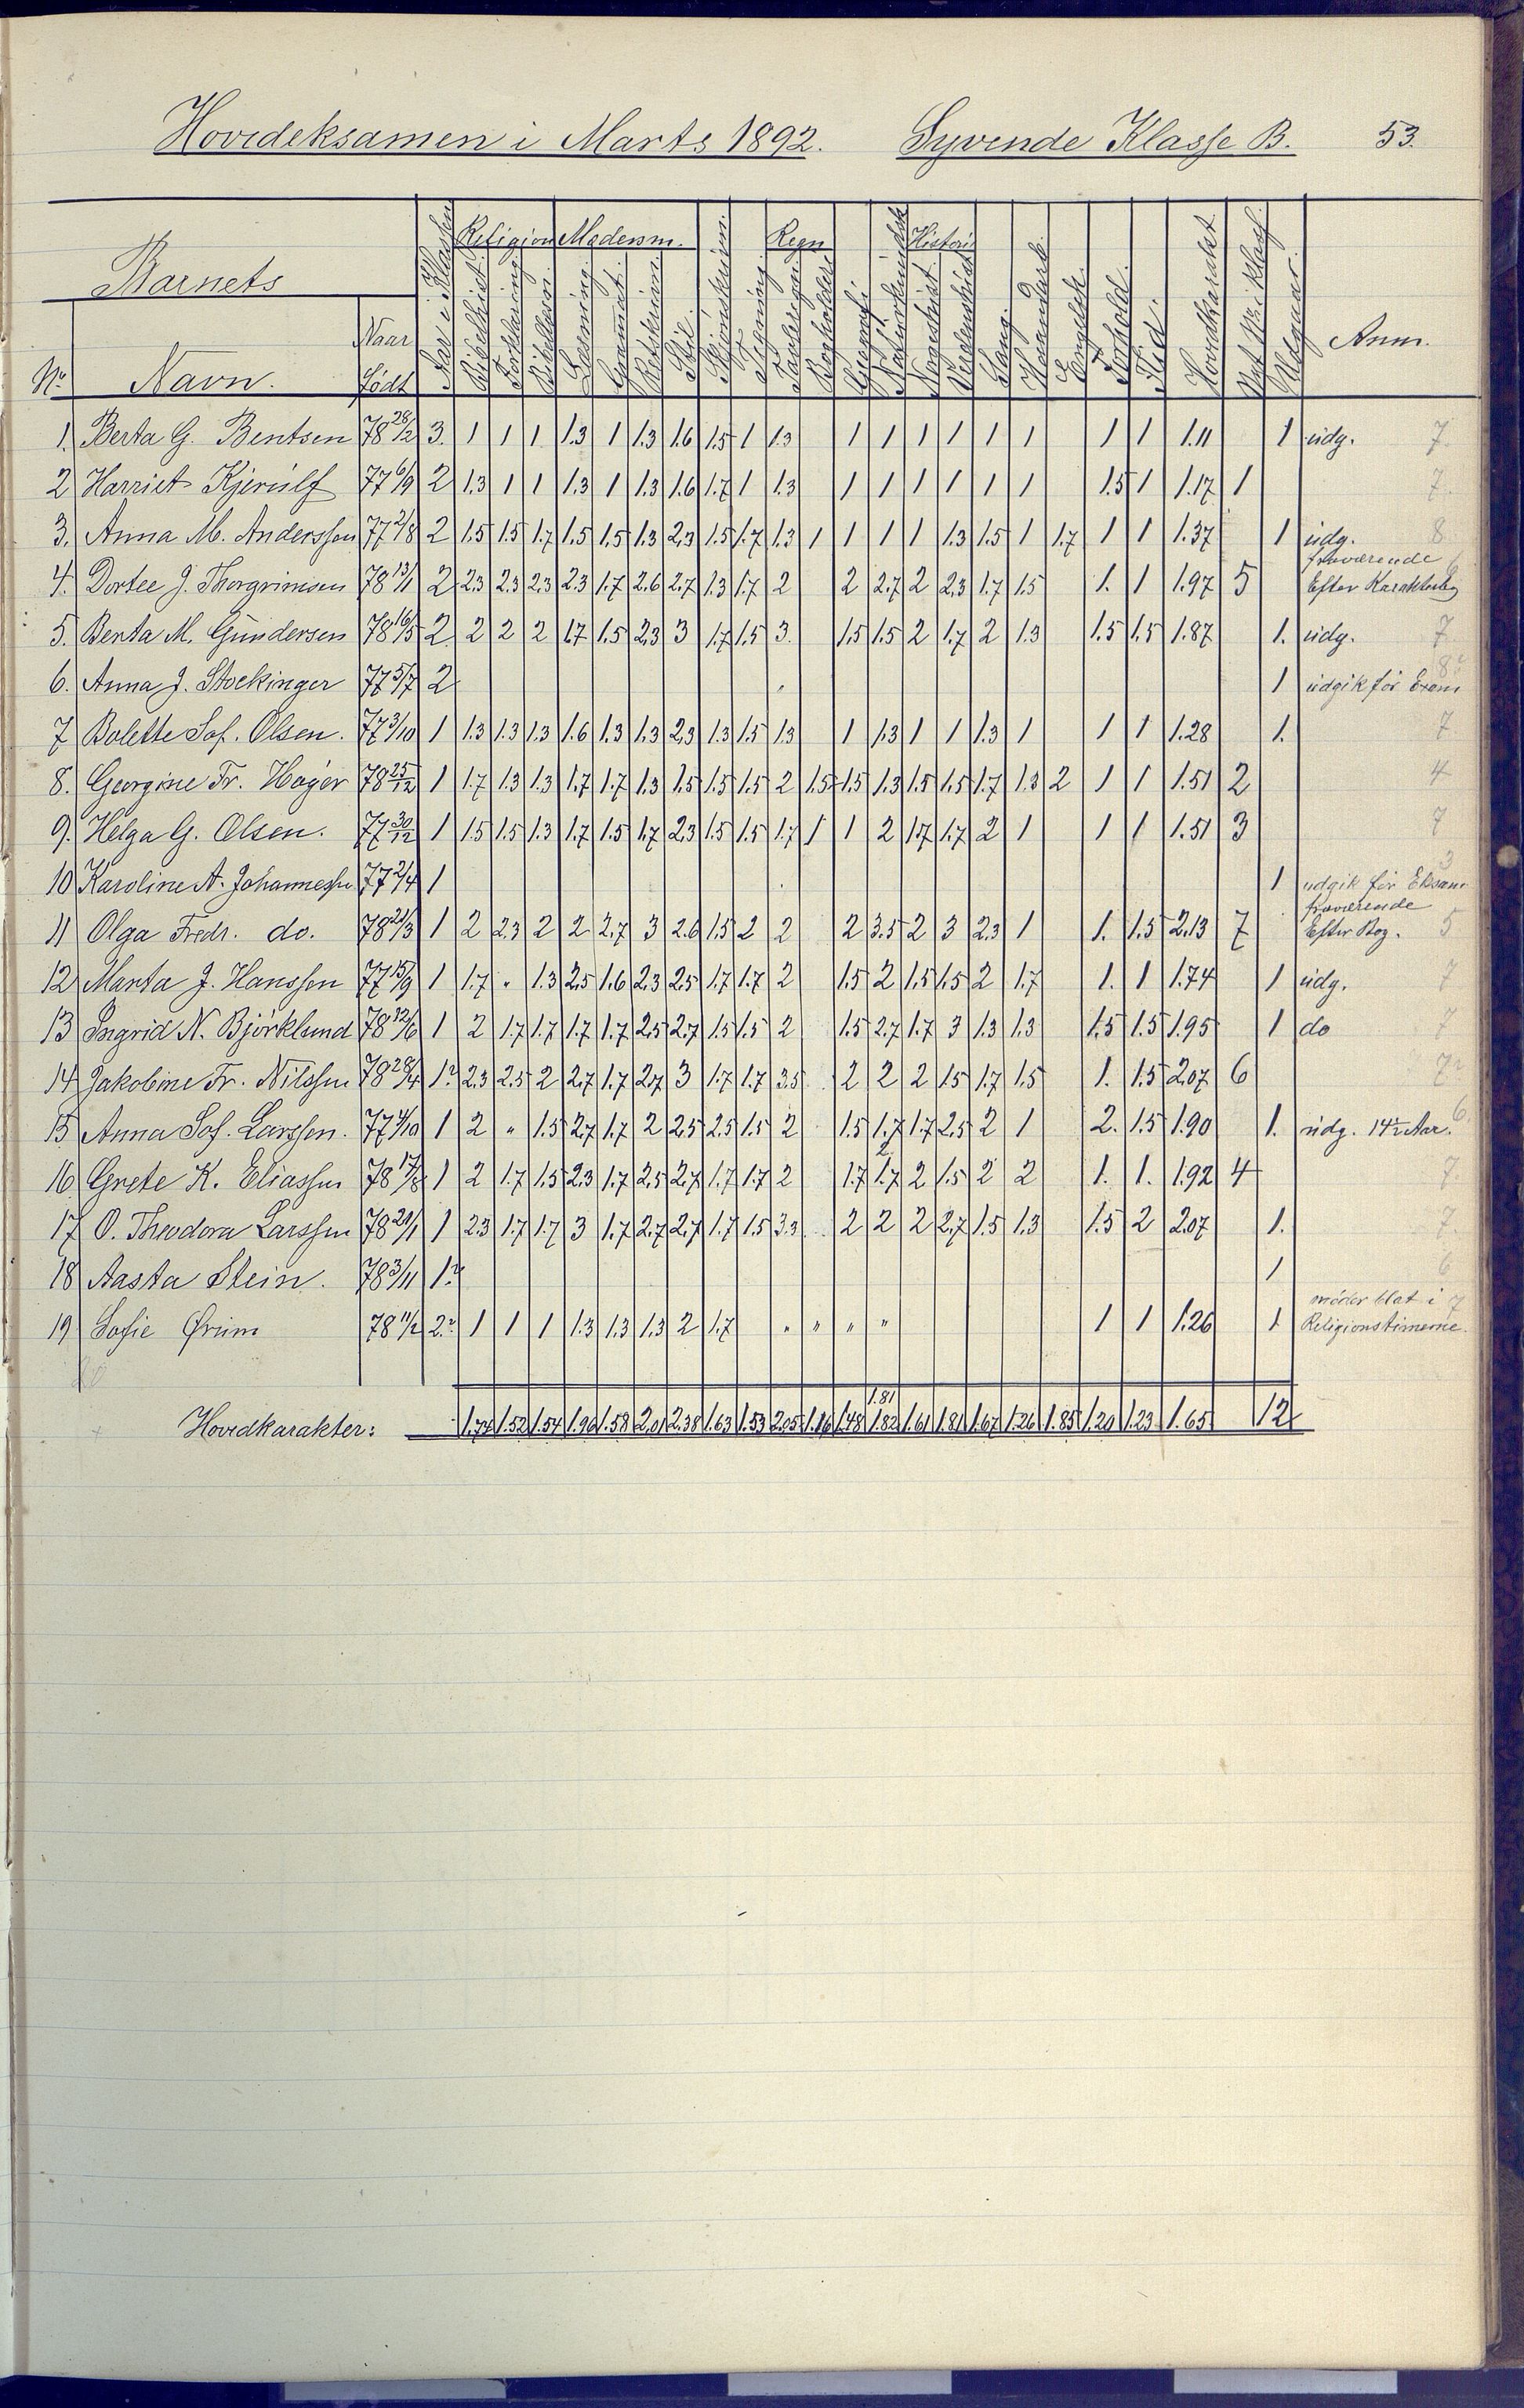 Hovedeksamen i Marts 1892. Syvende Klasse B. 53.
Barnets
Religion Modersm. Regn Histori
No Navn. Naar Født Aar i Klassen Bibelhist. Forklaring Bibellæsn. Læsning Gramat. Retskrivn. Stil. Skjönskrivn. Tegning Tavleregn. Bogholderi Geografi Naturkundsk Norgeshist. Verdenshist. Sang. Haandarb. Engelsk. Forhold. Flid. Hovedkarakt. Nyt No i Klass. Udgaar. Anm.
1. Berta G. Bentsen 78 28/2 3. 1 1 1 1.3 1 1.3 1.6 1.5 1 1.3 1 1 1 1 1 1 1 1 1.11 1 udg. 7.
2 Harriet Kjerulf 77 6/9 2 1.3 1 1 1.3 1 1.3 1.6 1.7 1 1.3 1 1 1 1 1 1 1.5 1 1.17 1 7.
3. Anna M. Anderssen 77 2/8 2 1.5 1.5 1.7 1.5 1.5 1.3 2.3 1.5 1.7 1.3 1 1 1 1 1.3 1.5 1 1.7 1 1 1.37 1 udg. 8
fraværende
4. Dortee J. Thorgrimsen 78 13/1 2 2.3 2.3 2.3 2.3 1.7 2.6 2.7 1.3 1.7 2 2 2.7 2 2.3 1.7 1.5 1. 1 1.97 5 Efter Karakterbog 6
5. Berta M. Gundersen 78 16/5 2 2 2 2 1.7 1.5 2.3 3 1.7 1.5 3. 1.5 1.5 2 1.7 2 1.3 1.5 1.5 1.87 1. udg. 7
6. Anna J. Stockinger 77 5/7 2 1 udgik för Exam 8?
7 Bolette Sof. Olsen. 77 3/10 1 1.3 1.3 1.3 1.6 1.3 1.3 2.3 1.3 1.5 1.3 1 1.3 1 1 1.3 1 1 1 1.28 1. 7
8. Georgine Fr. Høyer 78 25/12 1 1.7 1.3 1.3 1.7 1.7 1.3 1.5 1.5 1.5 2 1.5 1.5 1.3 1.5 1.5 1.7 1.3 2 1 1 1.51 2 4
9. Helga G. Olsen. 77 30/12 1 1.5 1.5 1.3 1.7 1.5 1.7 2.3 1.5 1.5 1.7 1 1 2 1.7 1.7 2 1 1 1 1.51 3 7
10 Karoline A. Johannessen 77 2/4 1 1 udgik för Eksam 3
fraværende
11 Olga Fredr. do. 78 21/3 1 2 2.3 2 2 2.7 3 2.6 1.5 2 2 2 3.5 2 3 2.3 1 1. 1.5 2.13 7 Efter Bog. 5
12 Marta J. Hanssen 77 15/9 1 1.7 " 1.3 2.5 1.6 2.3 2.5 1.7 1.7 2 1.5 2 1.5 1.5 2 1.7 1. 1 1.74 1 udg. 7
13 Ingrid N. Björklund 78 12/6 1 2 1.7 1.7 1.7 1.7 2.5 2.7 1.5 1.5 2 1.5 2.7 1.7 3 1.3 1.3 1.5 1.5 1.95 1 do 7
14 Jakobine Fr. Nilssen 78 28/4 1? 2.3 2.5 2 2.7 1.7 2.7 3 1.7 1.7 3.5 2 2 2 1.5 1.7 1.5 1. 1.5 2.07 6 7?
15 Anna Sof. Larssen. 77 4/10 1 2 " 1.5 2.7 1.7 2 2.5 2.5 1.5 2 1.5 1.7 1.7 2.5 2 1 2. 1.5 1.90 1. udg. 14½ Aar. 6
16 Grete K. Eliassen 78 17/8 1 2 1.7 1.5 2.3 1.7 2.5 2.7 1.7 1.7 2 1.7 1.7 2 2 1.5 2 2 1. 1. 1.92 4 7.
17 O. Theodora Larssen 78 20/1 1 2.3 1.7 1.7 3 1.7 2.7 2.7 1.7 1.5 3.3 2 2 2 2.7 1.5 1.3 1.5 2 2.07 1. 7.
18 Aasta Stein. 78 3/11 1? 1 6
möder blot i 7
19 Sofie Ørum 78 11/2 2? 1 1 1 1.3 1.3 1.3 2 1.7 " " " " 1 1 1.26 1 Religionstimerne.
20
1.81
Hovedkarakter: 1.74 1.52 1.54 1.96 1.58 2.01 2.38 1.63 1.53 2.05 1.16 1.48 1.82 1.61 1.81 1.67 1.26 1.85 1.20 1.23 1.65 12